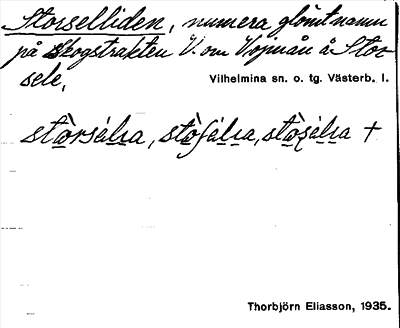 Storselliden, numera glömt namn
på skogstrakten V. om Vojmån å Stor
sele,
Vilhelmina sn. o. tg. Västerb. l.
Thorbjörn Eliasson, 1935.